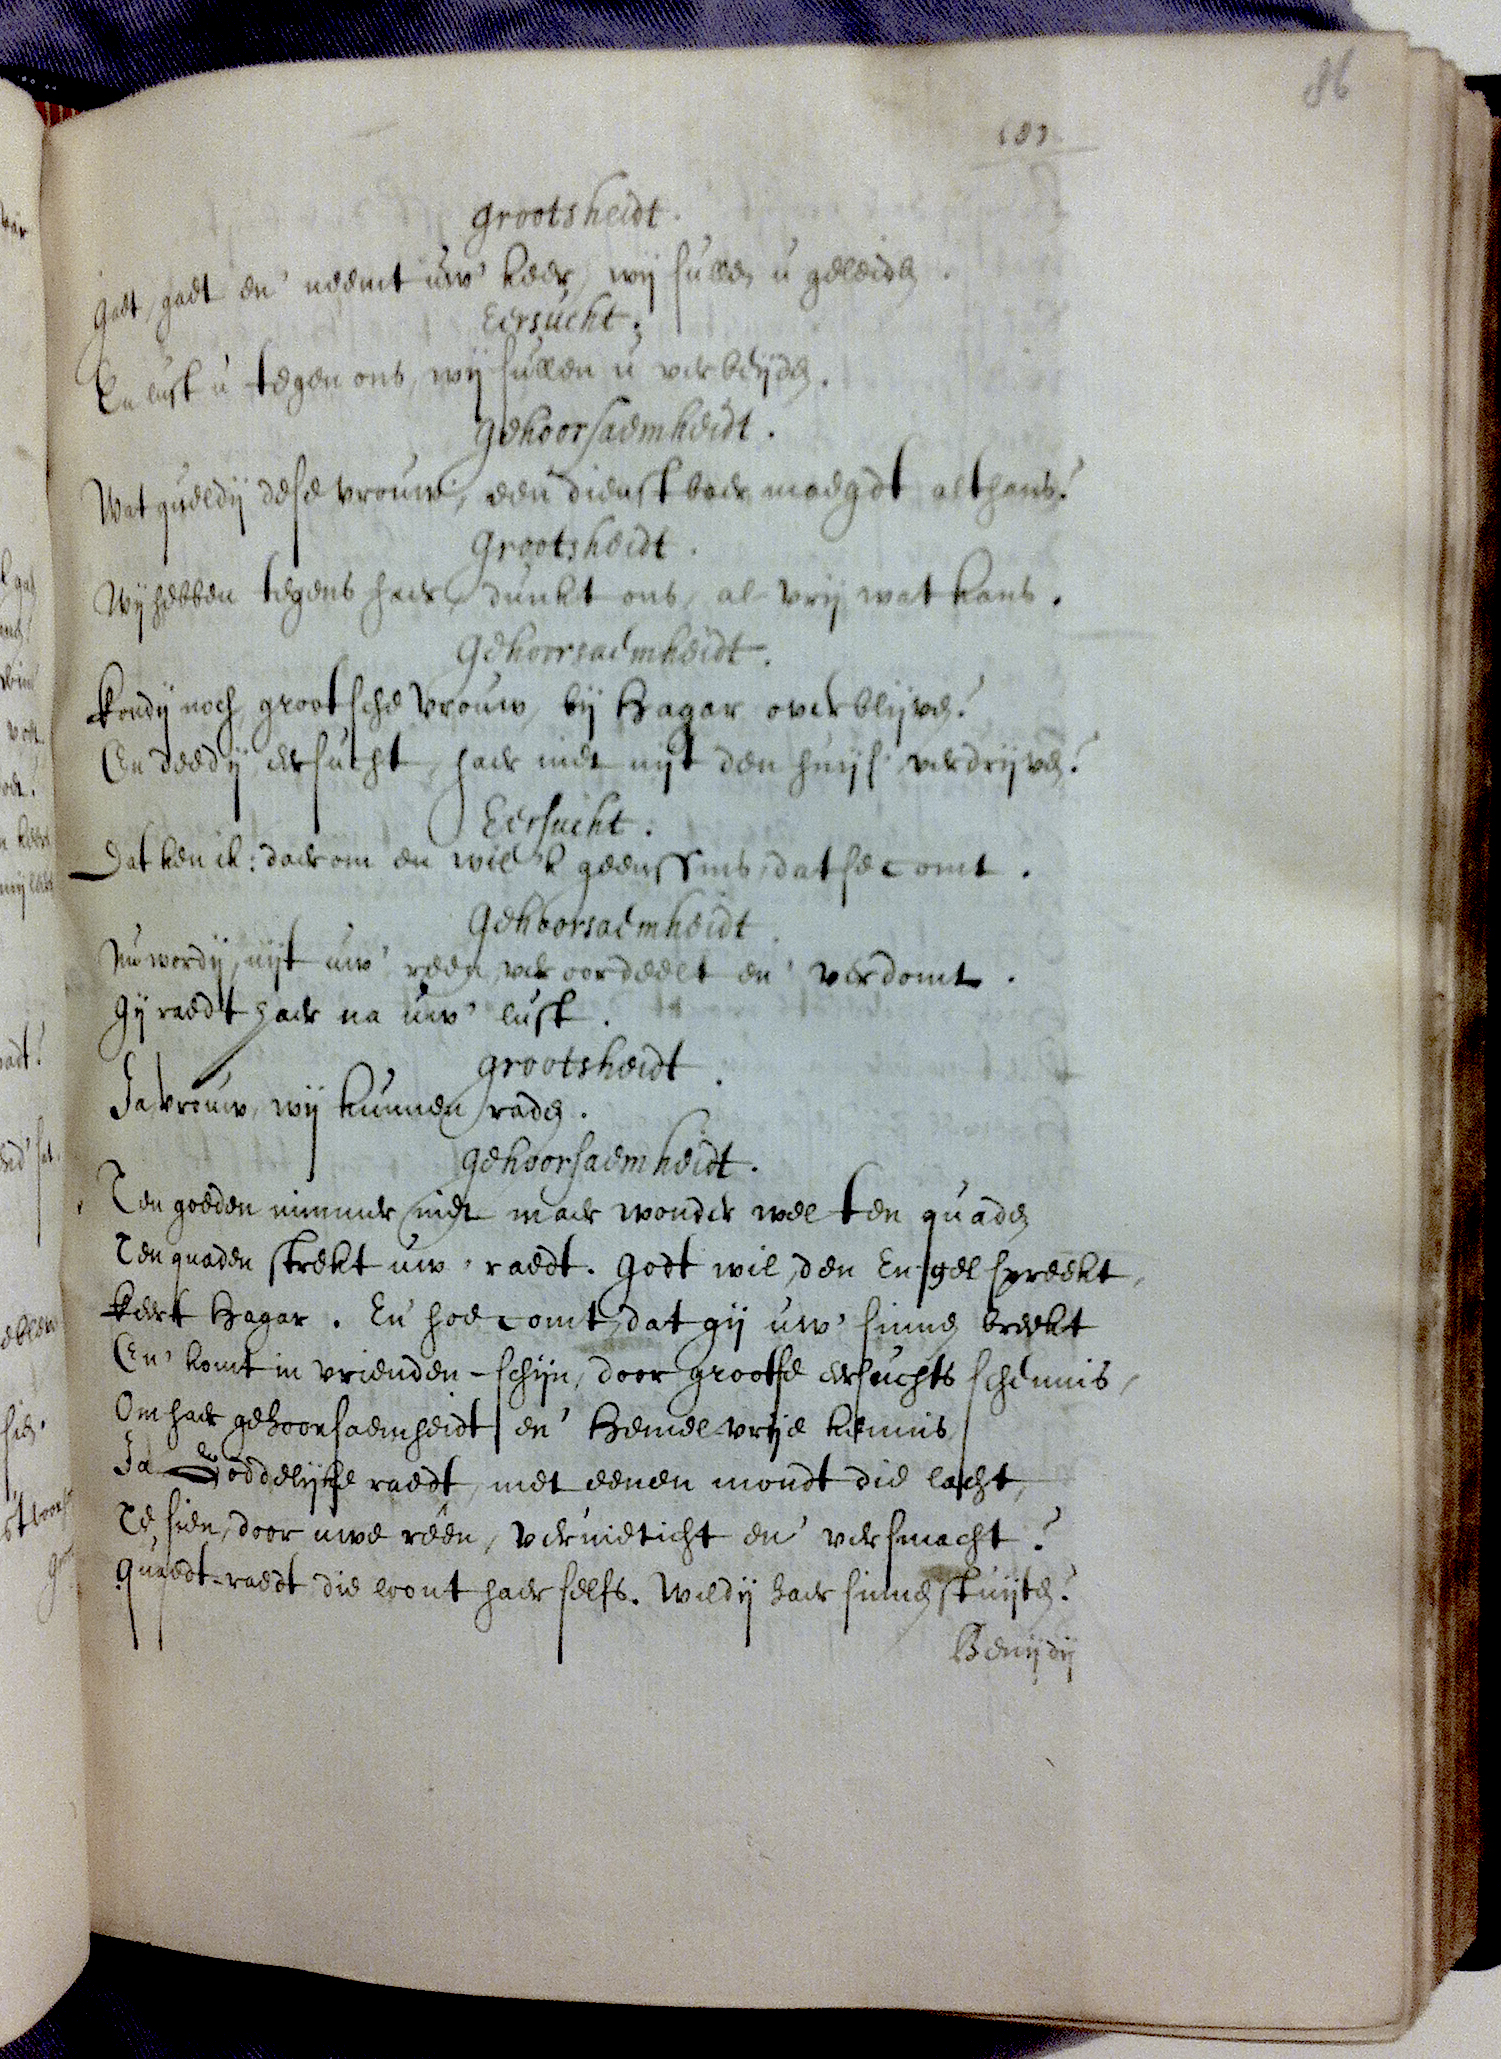 86
grootsheidt.
gaet, gaet en' neemt uw' keer, wij sullen u geleiden.
Eersucht.
En lust u tegen ons, wij sullen u verbeijden.
gehoorsaemheidt.
Wat queldij dese vrouw, een dienstbaer maegdt althans?
Grootsheidt.
Wij hebben tegens haer, dunkt ons, al vrij wat kans.
Gehoorsaemheidt.
Kondij noch, grootsche vrouw, bij Hagar overblijven?
En deedij, eersucht, haer niet uijt den huijs verdrijven?
Eersucht.
Dat ken ik: daerom en wil 'k geenssins, dat se comt.
Gehoorsaemheidt.
Nu wordij, uijt uw' reen, veroordeelt en' verdomt.
Gij raedt haer na uw' lust.
grootsheidt.
Ja vrouw, wij kunnen raden.
gehoorsaemheidt.
Ten goeden nimmer niet maer wonder wel ten quaden
Ten quaden strekt uw' raedt. Godt wil, den Engel spreekt,
Keert Hagar. En hoe comt, dat gij uw' sinnen breekt
En' komt in vrienden-schijn, door grootse eersuchts schennis,
Om haer gehoorsaemheidt en' Hemel-vrije kennis
Ja Goddelijke raedt, met eenen mondt die lacht,
Te sien, door uwe reen, vernieticht en' versmacht?
Quaedt-raedt die loont haer selfs. Wildij haer sinnen stuijten?
Benijdij